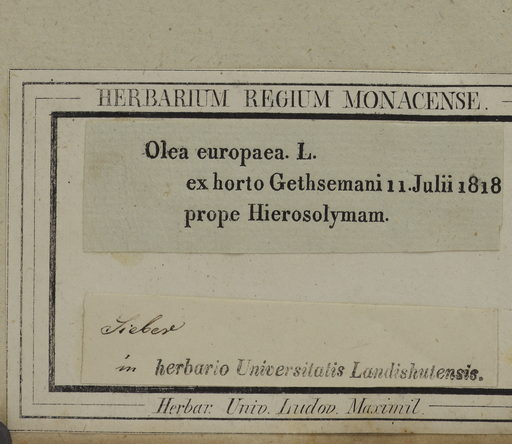 HERBARIUM REGIUM MONACENSE.
Olea europaea. L.
ex horto Gethsemani 11. Julii 1818
prope Hierosolymam.
Sieber
in herbario Universitatis Landishutensis.
Herbar. Univ. Ludov. Maximil.